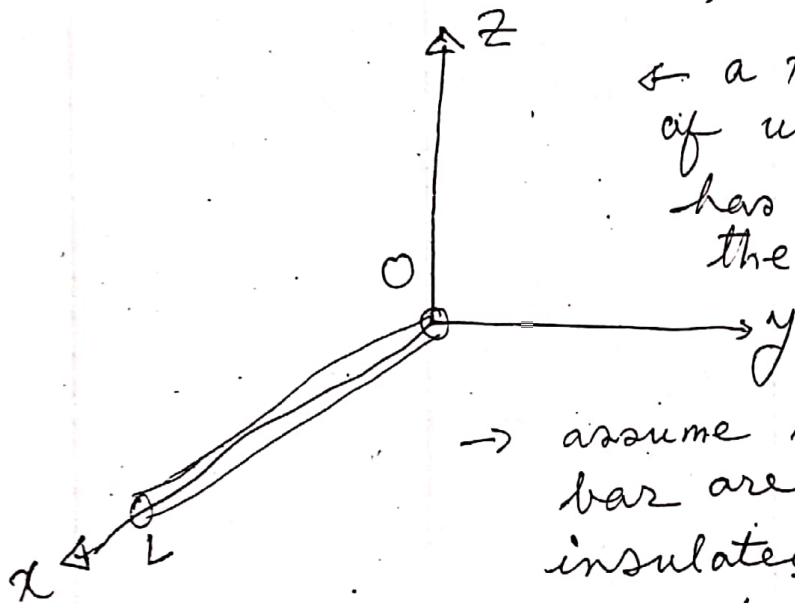 Z
← a
of
has
O
the
y
→ assume
bar are
insulate
x
L